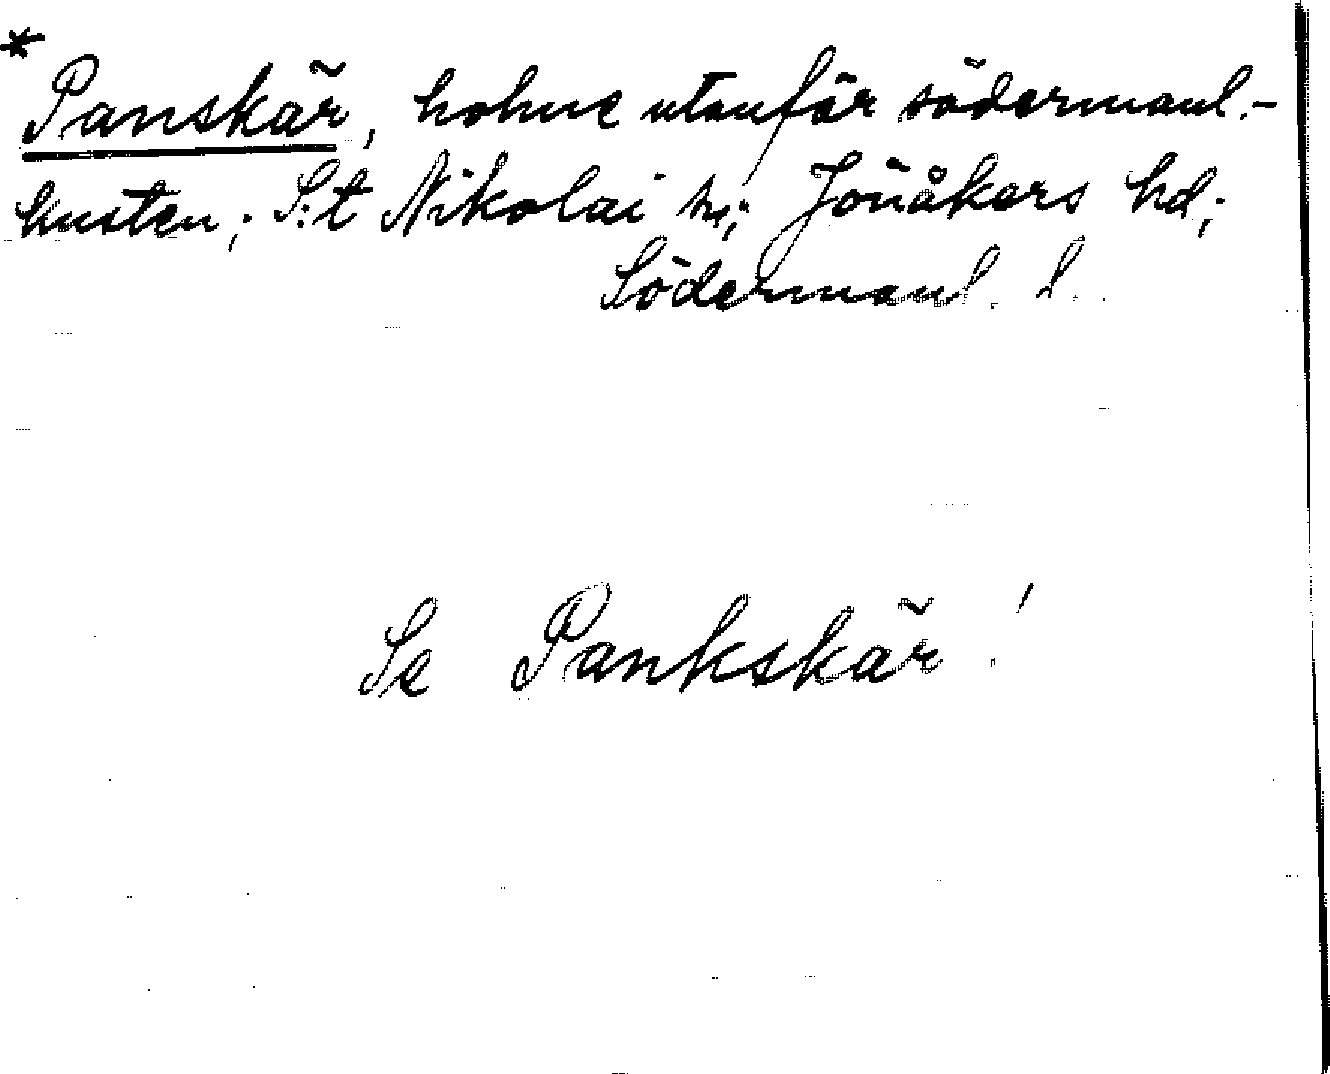 * Panskär, holme utanför södermanl.-
kusten; S:t Nikolai sn; Jönåkers hd;
Södermanl. l.
Se Pankskär!